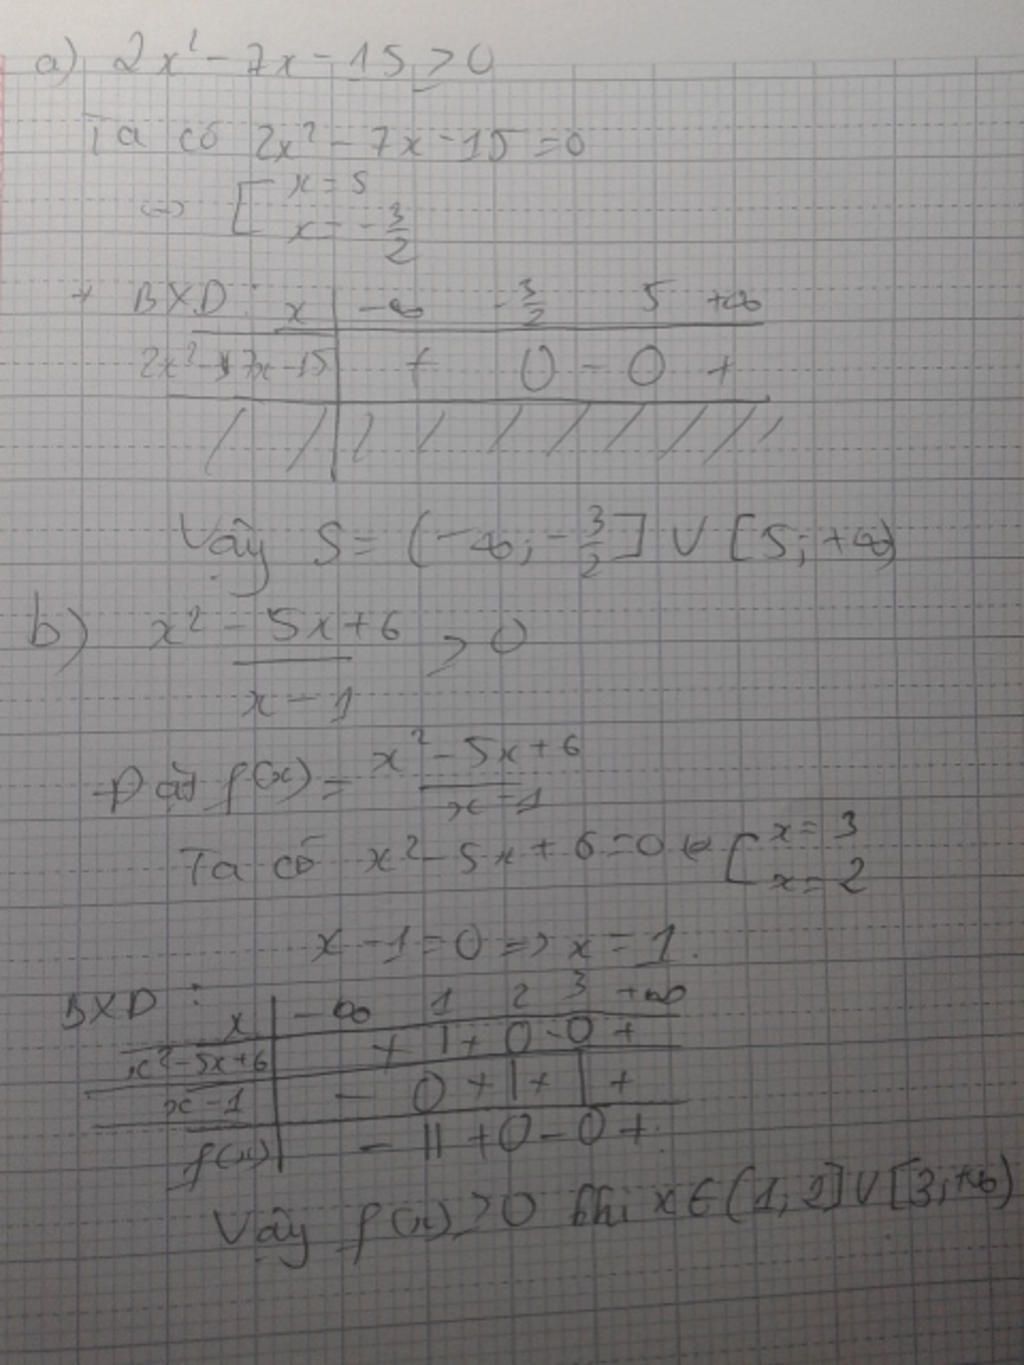 a) 2x² - 7x - 15 ≥ 0
Ta có 2x² - 7x - 15 = 0
⇔ [ x = 5
x = -3/2
+ BXD: x | -∞ -3/2 5 +∞
2x² - 7x - 15 | + 0 - 0 +
Vậy S = (-∞; -3/2] ∪ [5; +∞)
b) (x² - 5x + 6)/(x - 1) ≥ 0
Đặt f(x) = (x² - 5x + 6)/(x - 1)
Ta có x² - 5x + 6 = 0 ⇔ [ x = 3
x = 2
x - 1 = 0 => x = 1.
BXD:
x | -∞ 1 2 3 +∞
x² - 5x + 6 | + | + 0 - 0 +
x - 1 | - 0 + | + | +
f(x) | - || + 0 - 0 +
Vậy f(x) ≥ 0 khi x ∈ (1; 2] ∪ [3; +∞)